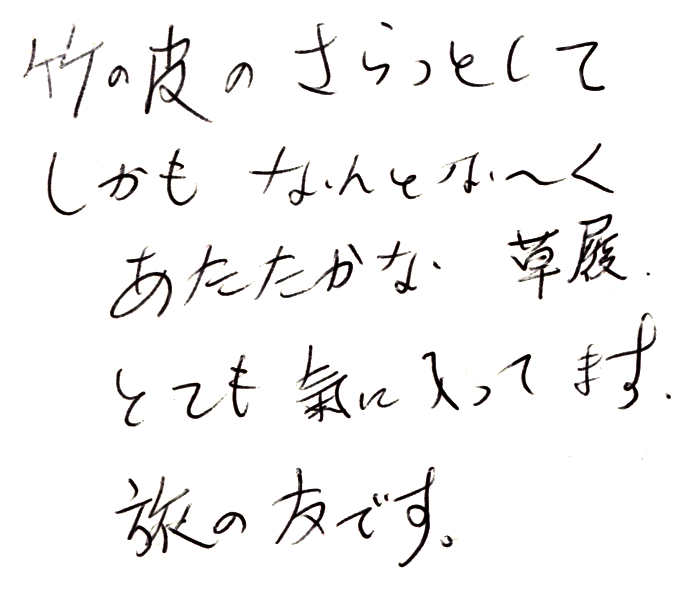 竹の皮の さらっとして
しかも なんとな〜く
あたたかな 草履.
とても 氣に入ってます.
旅の友です。